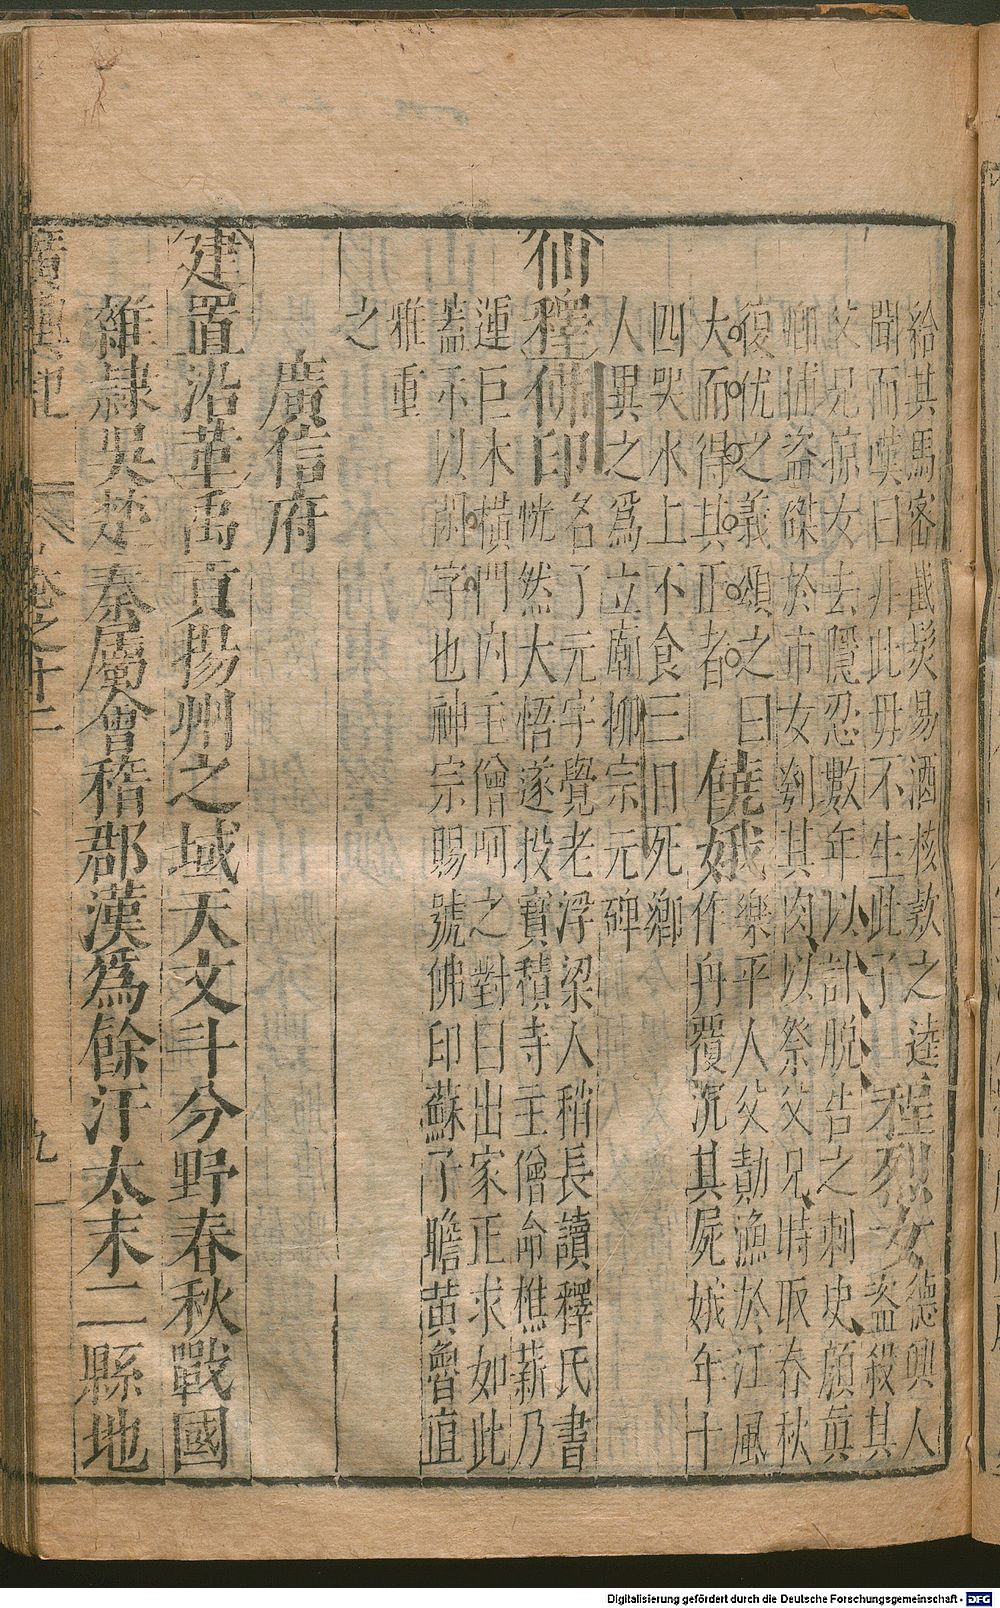 給其馬密截髮易酒核款之逵程烈女德興人
聞而嘆曰非此毋不生此子盜殺其
父兄掠女去隱忍數年以計脫告之刺史顔眞
卿捕盜磔於市女刳其肉以祭父兄時取春秋
復仇之義頌之曰饒娥樂平人父勣漁於江風
大而得其正者作舟覆沉其屍娥年十
四哭水上不食三日死鄉
人異之爲立廟柳宗元碑
仙釋佛印名了元字覺老浮梁人稍長讀釋氏書
恍然大悟遂投寳積寺主僧命樵薪乃
運巨木橫門内主僧呵之對曰出家正求如此
蓋示以閑字也神宗賜號佛印蘇子瞻黄魯直
雅重
之
廣信府
建置沿革禹貢揚州之域天文斗分野春秋戰國
雜隷吳楚秦屬會稽郡漢爲餘汗太末二縣地
廣輿記 卷之十二 九
Digitalisierung gefördert durch die Deutsche Forschungsgemeinschaft - DFG